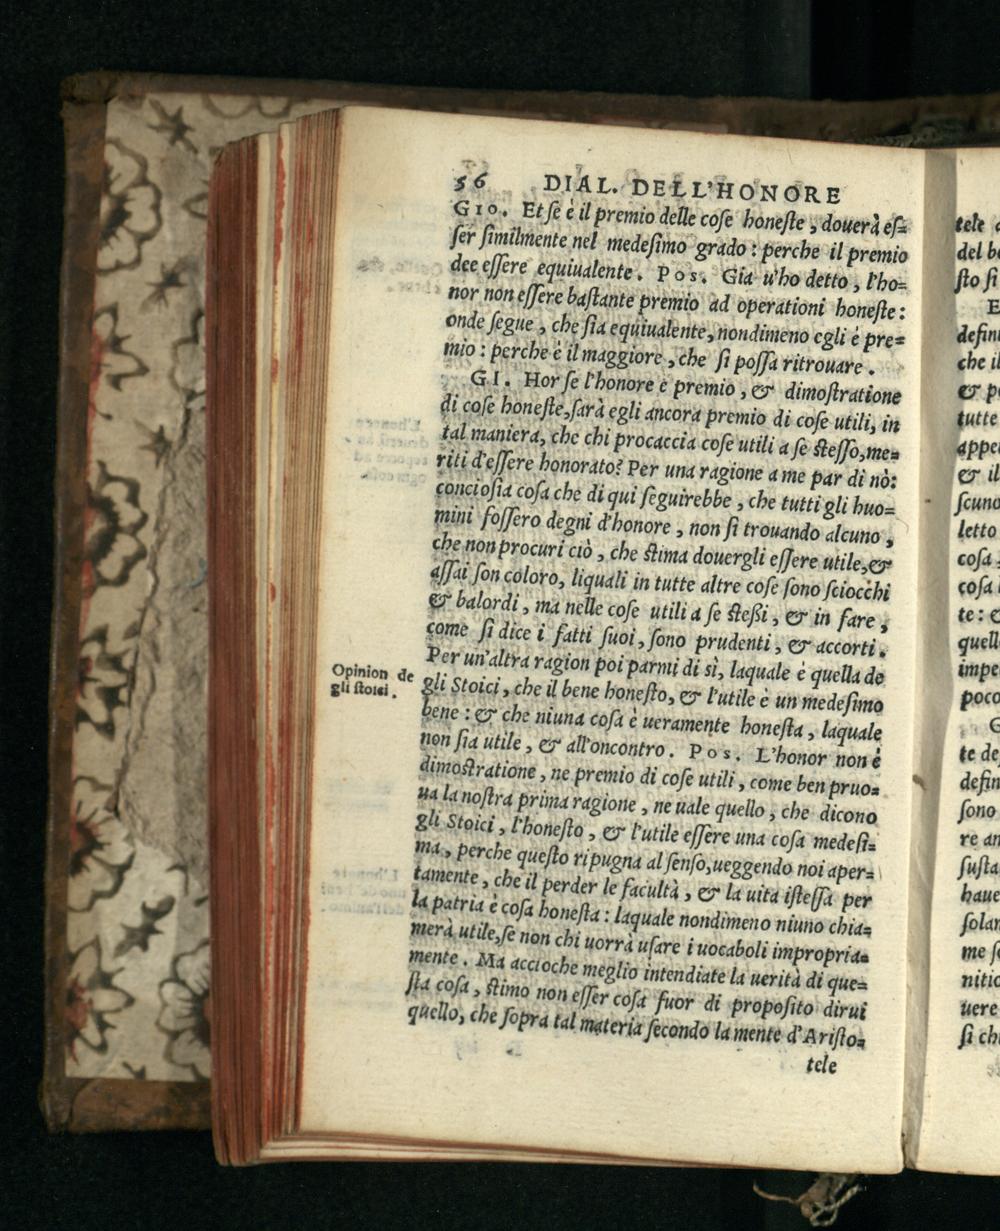 56 DIAL. DELL'HONORE
GIO. Et se è il premio delle cose honeste, douerà es=
ser similmente nel medesimo grado: perche il premio
dee essere equiualente. Pos. Gia u'ho detto, l'ho=
nor non essere bastante premio ad operationi honeste:
onde segue, che sia equiualente, nondimeno egli è pre=
mio: perche è il maggiore, che si possa ritrouare.
GI. Hor se l'honore è premio, & dimostratione
di cose honeste, sarà egli ancora premio di cose utili, in
tal maniera, che chi procaccia cose utili a se stesso, me=
riti d'essere honorato? Per una ragione a me par di nò:
conciosia cosa che di qui seguirebbe, che tutti gli huo=
mini fossero degni d'honore, non si trouando alcuno,
che non procuri ciò, che stima douergli essere utile, &
assai son coloro, liquali in tutte altre cose sono sciocchi
& balordi, ma nelle cose utili a se stessi, & in fare,
come si dice i fatti suoi, sono prudenti, & accorti.
Per un'altra ragion poi parmi di sì, laquale è quella de
Opinion de
gli stoici.
gli Stoici, che il bene honesto, & l'utile è un medesimo
bene: & che niuna cosa è ueramente honesta, laquale
non sia utile, & all'oncontro. Pos. L'honor non è
dimostratione, ne premio di cose utili, come ben pruo=
ua la nostra prima ragione, ne uale quello, che dicono
gli Stoici, l'honesto, & l'utile essere una cosa medesi=
ma, perche questo ripugna al senso, ueggendo noi aper=
tamente, che il perder le facultà, & la uita istessa per
la patria è cosa honesta: laquale nondimeno niuno chia=
merà utile, se non chi uorrà usare i uocaboli impropria=
mente. Ma accioche meglio intendiate la uerità di que=
sta cosa, stimo non esser cosa fuor di proposito dirui
quello, che sopra tal materia secondo la mente d'Aristo=
tele
tele
del
sto si
defin
che il
& p
tutte
appe
& il
scuno
letto
cosa
cosa
te:
quell
impe
poco
te de
defin
sono
re an
susta
haue
solan
me
nitio
uere
si ch